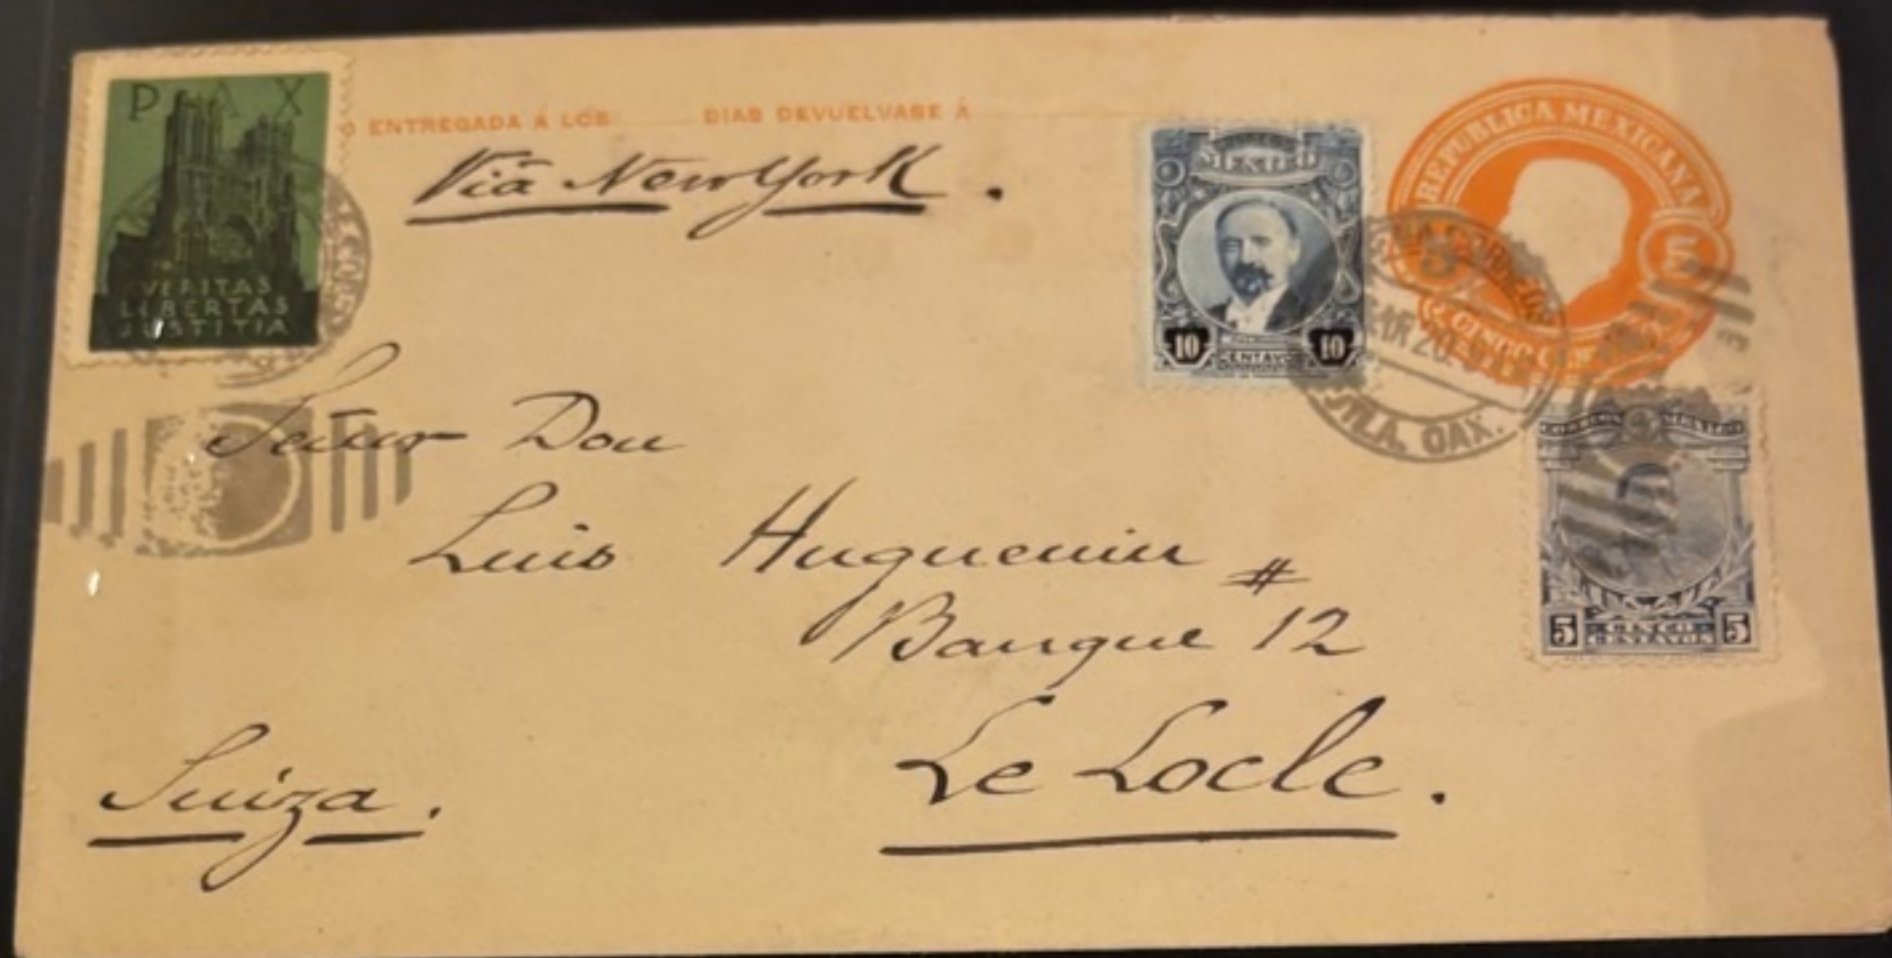 PAX
VERITAS
LIBERTAS
JUSTITIA
ENTREGADA Á LOS DIAS DEVUELVASE Á
Via New York.
MEXICO
10 CENTAVOS 10
REPUBLICA MEXICANA
5 5
CINCO
MAR 20
OAX.
CORREOS MEXICO
5 CENTAVOS 5
Señor Don
Luis Huguenin
Banque # 12
Le Locle.
Suiza.